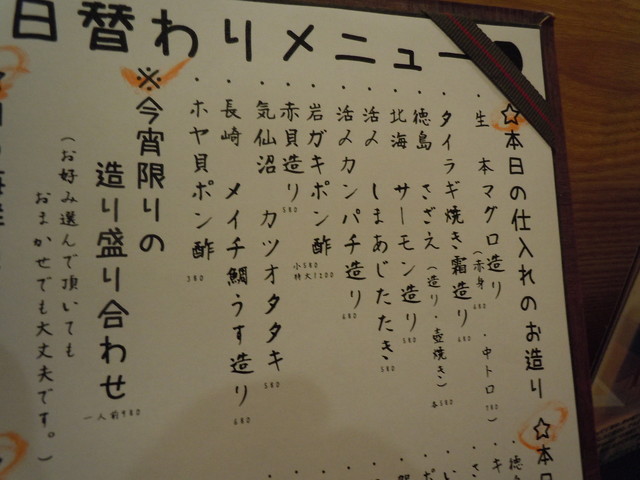 日替わりメニュー
☆本日の仕入れのお造り
・生 本マグロ造り(赤身 680 ・中トロ 780)
・タイラギ焼き霜造り 680
・徳島 さざえ(造り・壺焼き)各580
・北海 サーモン造り 580
・活〆 しまあじたたき 580
・活〆カンパチ造り 680
・岩ガキポン酢 小580 特大1200
・赤貝造り 580
・気仙沼 カツオタタキ 580
・長崎 メイチ鯛うす造り 680
・ホヤ貝ポン酢 380
※今宵限りの
造り盛り合わせ
一人前980
(お好み選んで頂いても
おまかせでも大丈夫です。)
☆本日
・徳島